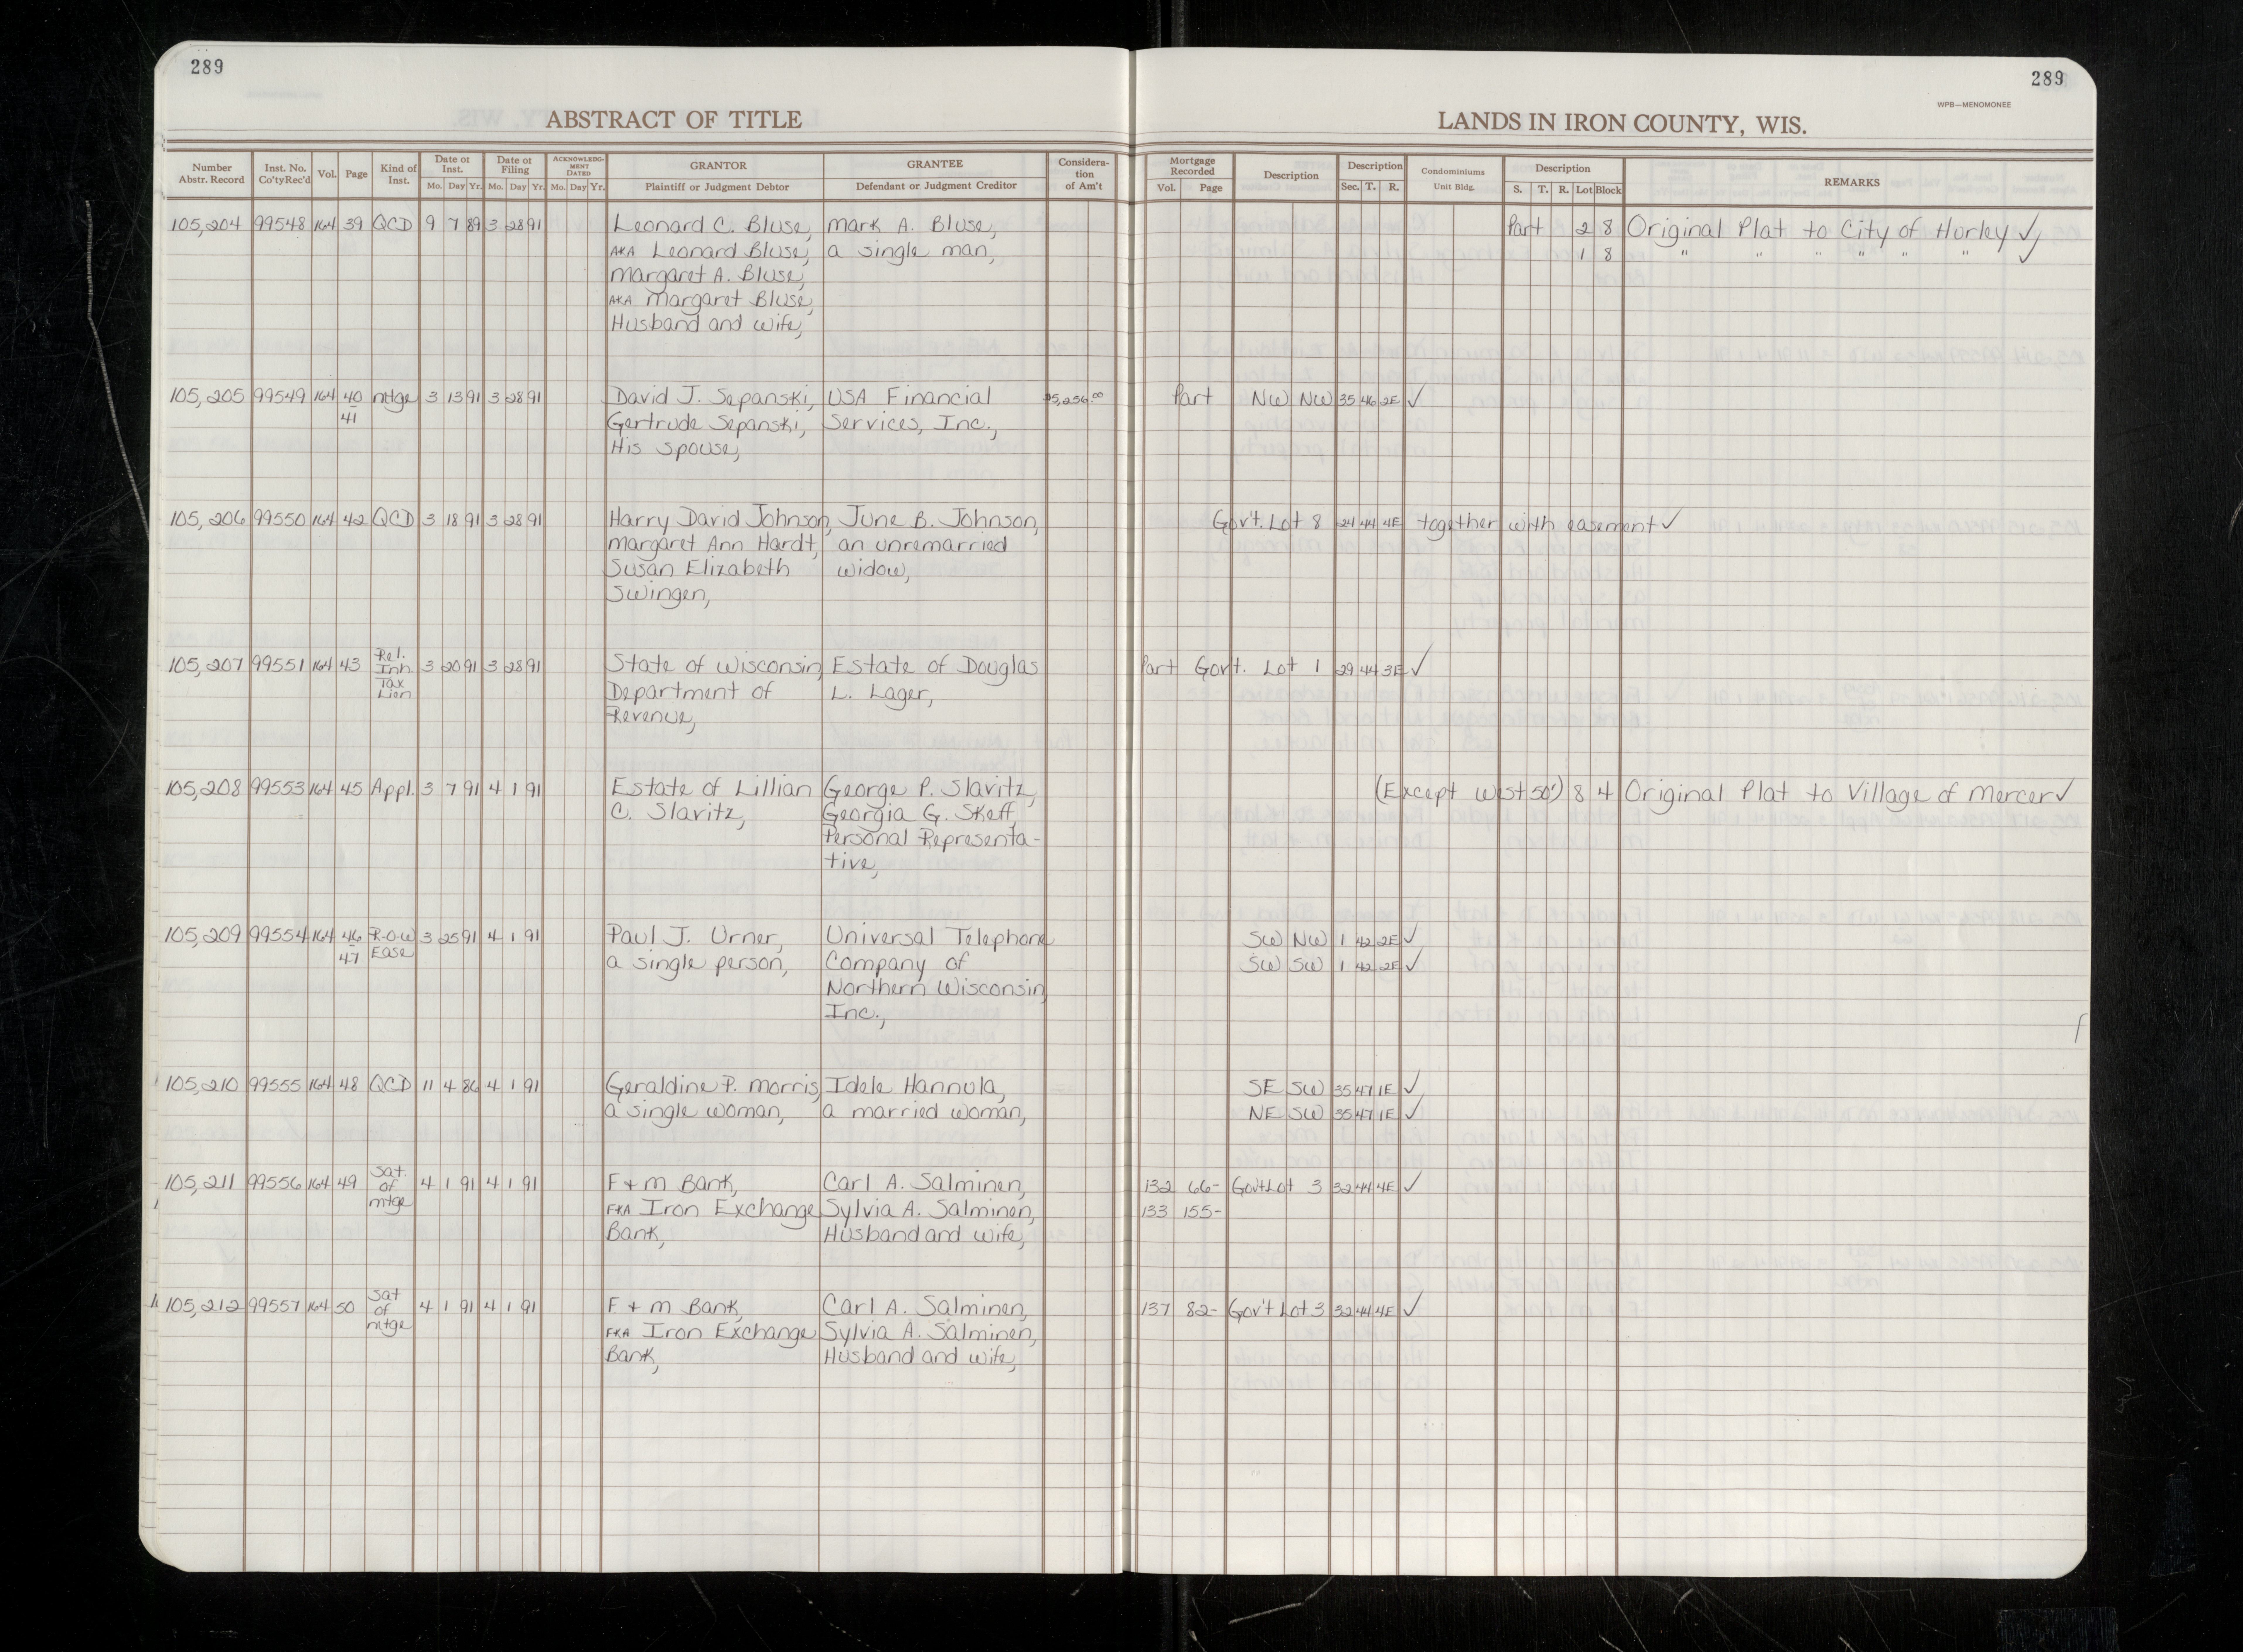 289
289
WPB—MENOMONEE
ABSTRACT OF TITLE
LANDS IN IRON COUNTY, WIS.
Number Abstr. Record Inst. No. Co'tyRec'd Vol. Page Kind of Inst. Date of Inst. Mo. Day Yr. Date of Filing Mo. Day Yr. ACKNOWLEDGMENT DATED Mo. Day Yr. GRANTOR Plaintiff or Judgment Debtor GRANTEE Defendant or Judgment Creditor Consideration of Am't Mortgage Recorded Vol. Page Description Description Sec. T. R. Condominiums Unit Bldg. Description S. T. R. Lot Block REMARKS
105,204 99548 164 39 QCD 9 7 89 3 28 91 Leonard C. Bluse, Mark A. Bluse, Part 2 8 Original Plat to City of Hurley ✓
AKA Leonard Bluse, a single man, 1 8 " " " " " " ✓
Margaret A. Bluse,
AKA Margaret Bluse,
Husband and wife,
105,205 99549 164 40 mtge 3 13 91 3 28 91 David J. Sepanski, USA Financial $5,256.00 Part NW NW 35 46 2E ✓
41 Gertrude Sepanski, Services, Inc.,
His spouse,
105,206 99550 164 42 QCD 3 18 91 3 28 91 Harry David Johnson, June B. Johnson, Gov't. Lot 8 24 44 4E together with easement ✓
Margaret Ann Hardt, an unremarried
Susan Elizabeth widow,
Swingen,
Rel.
105,207 99551 164 43 Inh 3 20 91 3 28 91 State of Wisconsin, Estate of Douglas Part Gov't. Lot 1 29 44 3E ✓
Tax Department of L. Lager,
Lien Revenue,
105,208 99553 164 45 Appl. 3 7 91 4 1 91 Estate of Lillian George P. Slavitz, (Except West 50') 8 4 Original Plat to Village of Mercer ✓
C. Slavitz, Georgia G. Skeff,
Personal Representa-
tive,
105,209 99554 164 46 R-O-W 3 25 91 4 1 91 Paul J. Urner, Universal Telephone SW NW 1 42 2E ✓
47 Ease a single person, Company of SW SW 1 42 2E ✓
Northern Wisconsin,
Inc.,
105,210 99555 164 48 QCD 11 4 86 4 1 91 Geraldine P. Morris, Idele Hannula, SE SW 35 47 1E ✓
a single woman, a married woman, NE SW 35 47 1E ✓
Sat.
105,211 99556 164 49 of 4 1 91 4 1 91 F & M Bank, Carl A. Salminen, 132 66- Gov't Lot 3 32 44 4E ✓
mtge FKA Iron Exchange Sylvia A. Salminen, 133 155-
Bank, Husband and wife,
Sat
105,212 99557 164 50 of 4 1 91 4 1 91 F & M Bank, Carl A. Salminen, 137 82- Gov't Lot 3 32 44 4E ✓
mtge FKA Iron Exchange Sylvia A. Salminen,
Bank, Husband and wife,